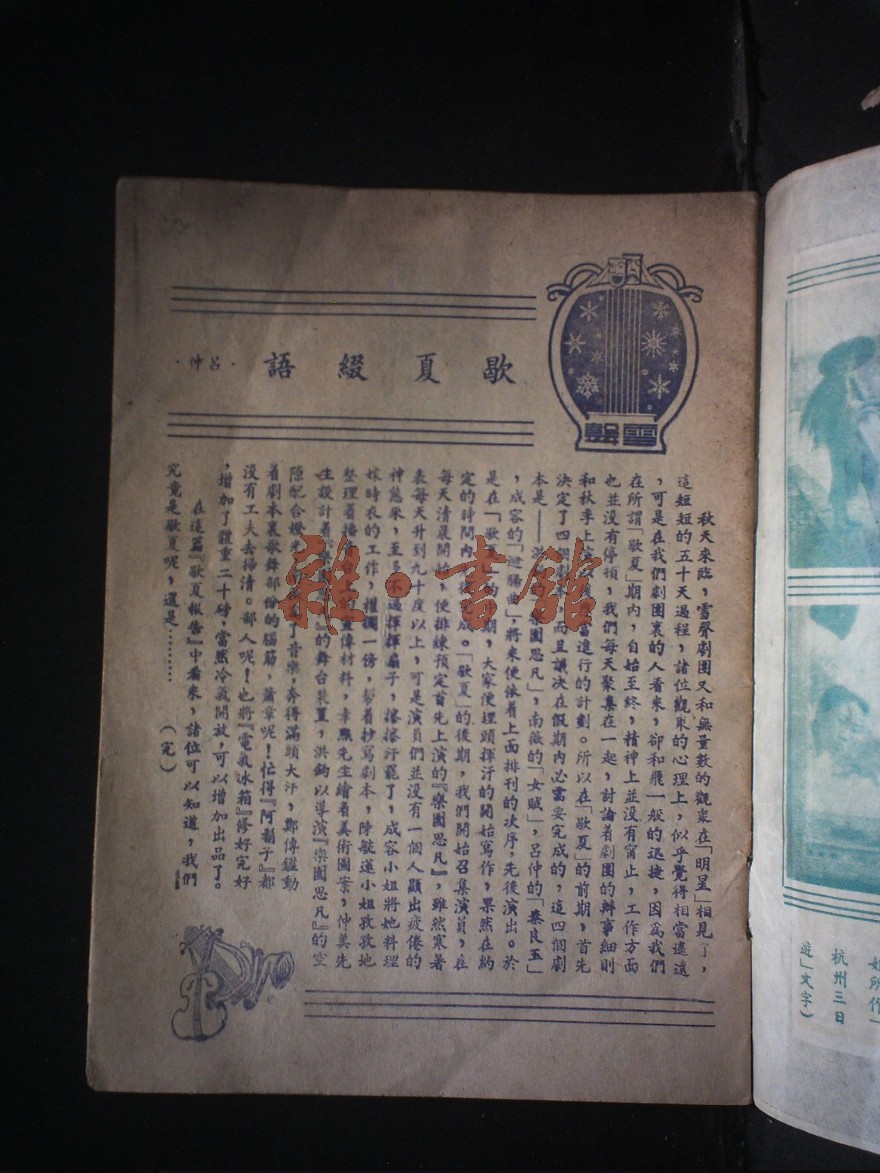 歇夏綴語
·呂仲·
雪聲
秋天來臨，雪聲劇團又和無量數的觀衆在「明星」相見了，
這短短的五十天過程，諸位觀衆的心理上，似乎覺得相當遙遠
，可是在我們劇團裏的人看來，卻和飛一般的迅捷，因爲我們
在所謂「歇夏」期內，自始至終，精神上並没有甯止，工作方面
也並没有停頓，我們每天聚集在一起，討論着劇團的辦事細則
和秋季上演以當進行的計劃。所以在「歇夏」的前期，首先
決定了四個劇本，而且議決在假期內必需要完成的，這四個劇
本是——洪的「樂園思凡」，南薇的「女賊」，呂仲的「秦良玉」
，成容的「」，將來便依着上面排刊的次序，先後演出。於
是在「歇夏」期，大家便埋頭揮汗的開始寫作，果然在約
定的時間內後完成。「歇夏」的後期，我們開始召集演員，在
每天清晨開始，便排練預定首先上演的『樂園思凡』，雖然寒暑
表每天升到九十度以上，可是演員們並没有一個人顯出疲倦的
神態來，至多不過揮揮扇子，揩揩汗罷了，成容小姐將她料理
嫁時衣的工作，擱一傍，幫着抄寫劇本，陳小姐孜孜地
整理着播上的宣傳材料，幸熙先生繪着美術圖案，仲美先
生設計着『』的舞台裝置，洪鈞以導演『樂園思凡』的空
隙配合燈光了音樂，奔得滿頭大汗，鄭傳鑑動
着劇本裏歌舞部份的腦筋，蕭章呢！忙得『阿鬍子』都
没有工夫去掃清。鄙人呢！也將『電氣冰箱』修好完好
，增加了體重二十磅，當然冷氣開放，可以增加出品了。
在這篇『歇夏報告』中看來，諸位可以知道，我們
究竟是歇夏呢，還是………　（完）
雜·書館
所作
杭州三日
遊」文字）